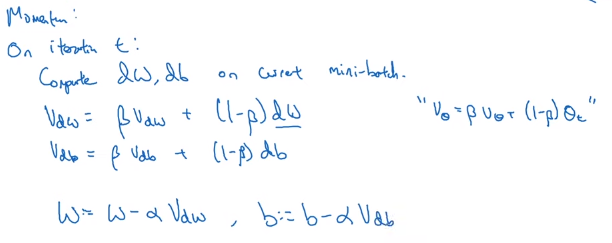 Momentum:
On iteration t:
Compute dW, db on current mini-batch.
V_dw = β V_dw + (1-β) dW
"V_θ = β V_θ + (1-β) θ_t"
V_db = β V_db + (1-β) db
W := W - α V_dw , b := b - α V_db